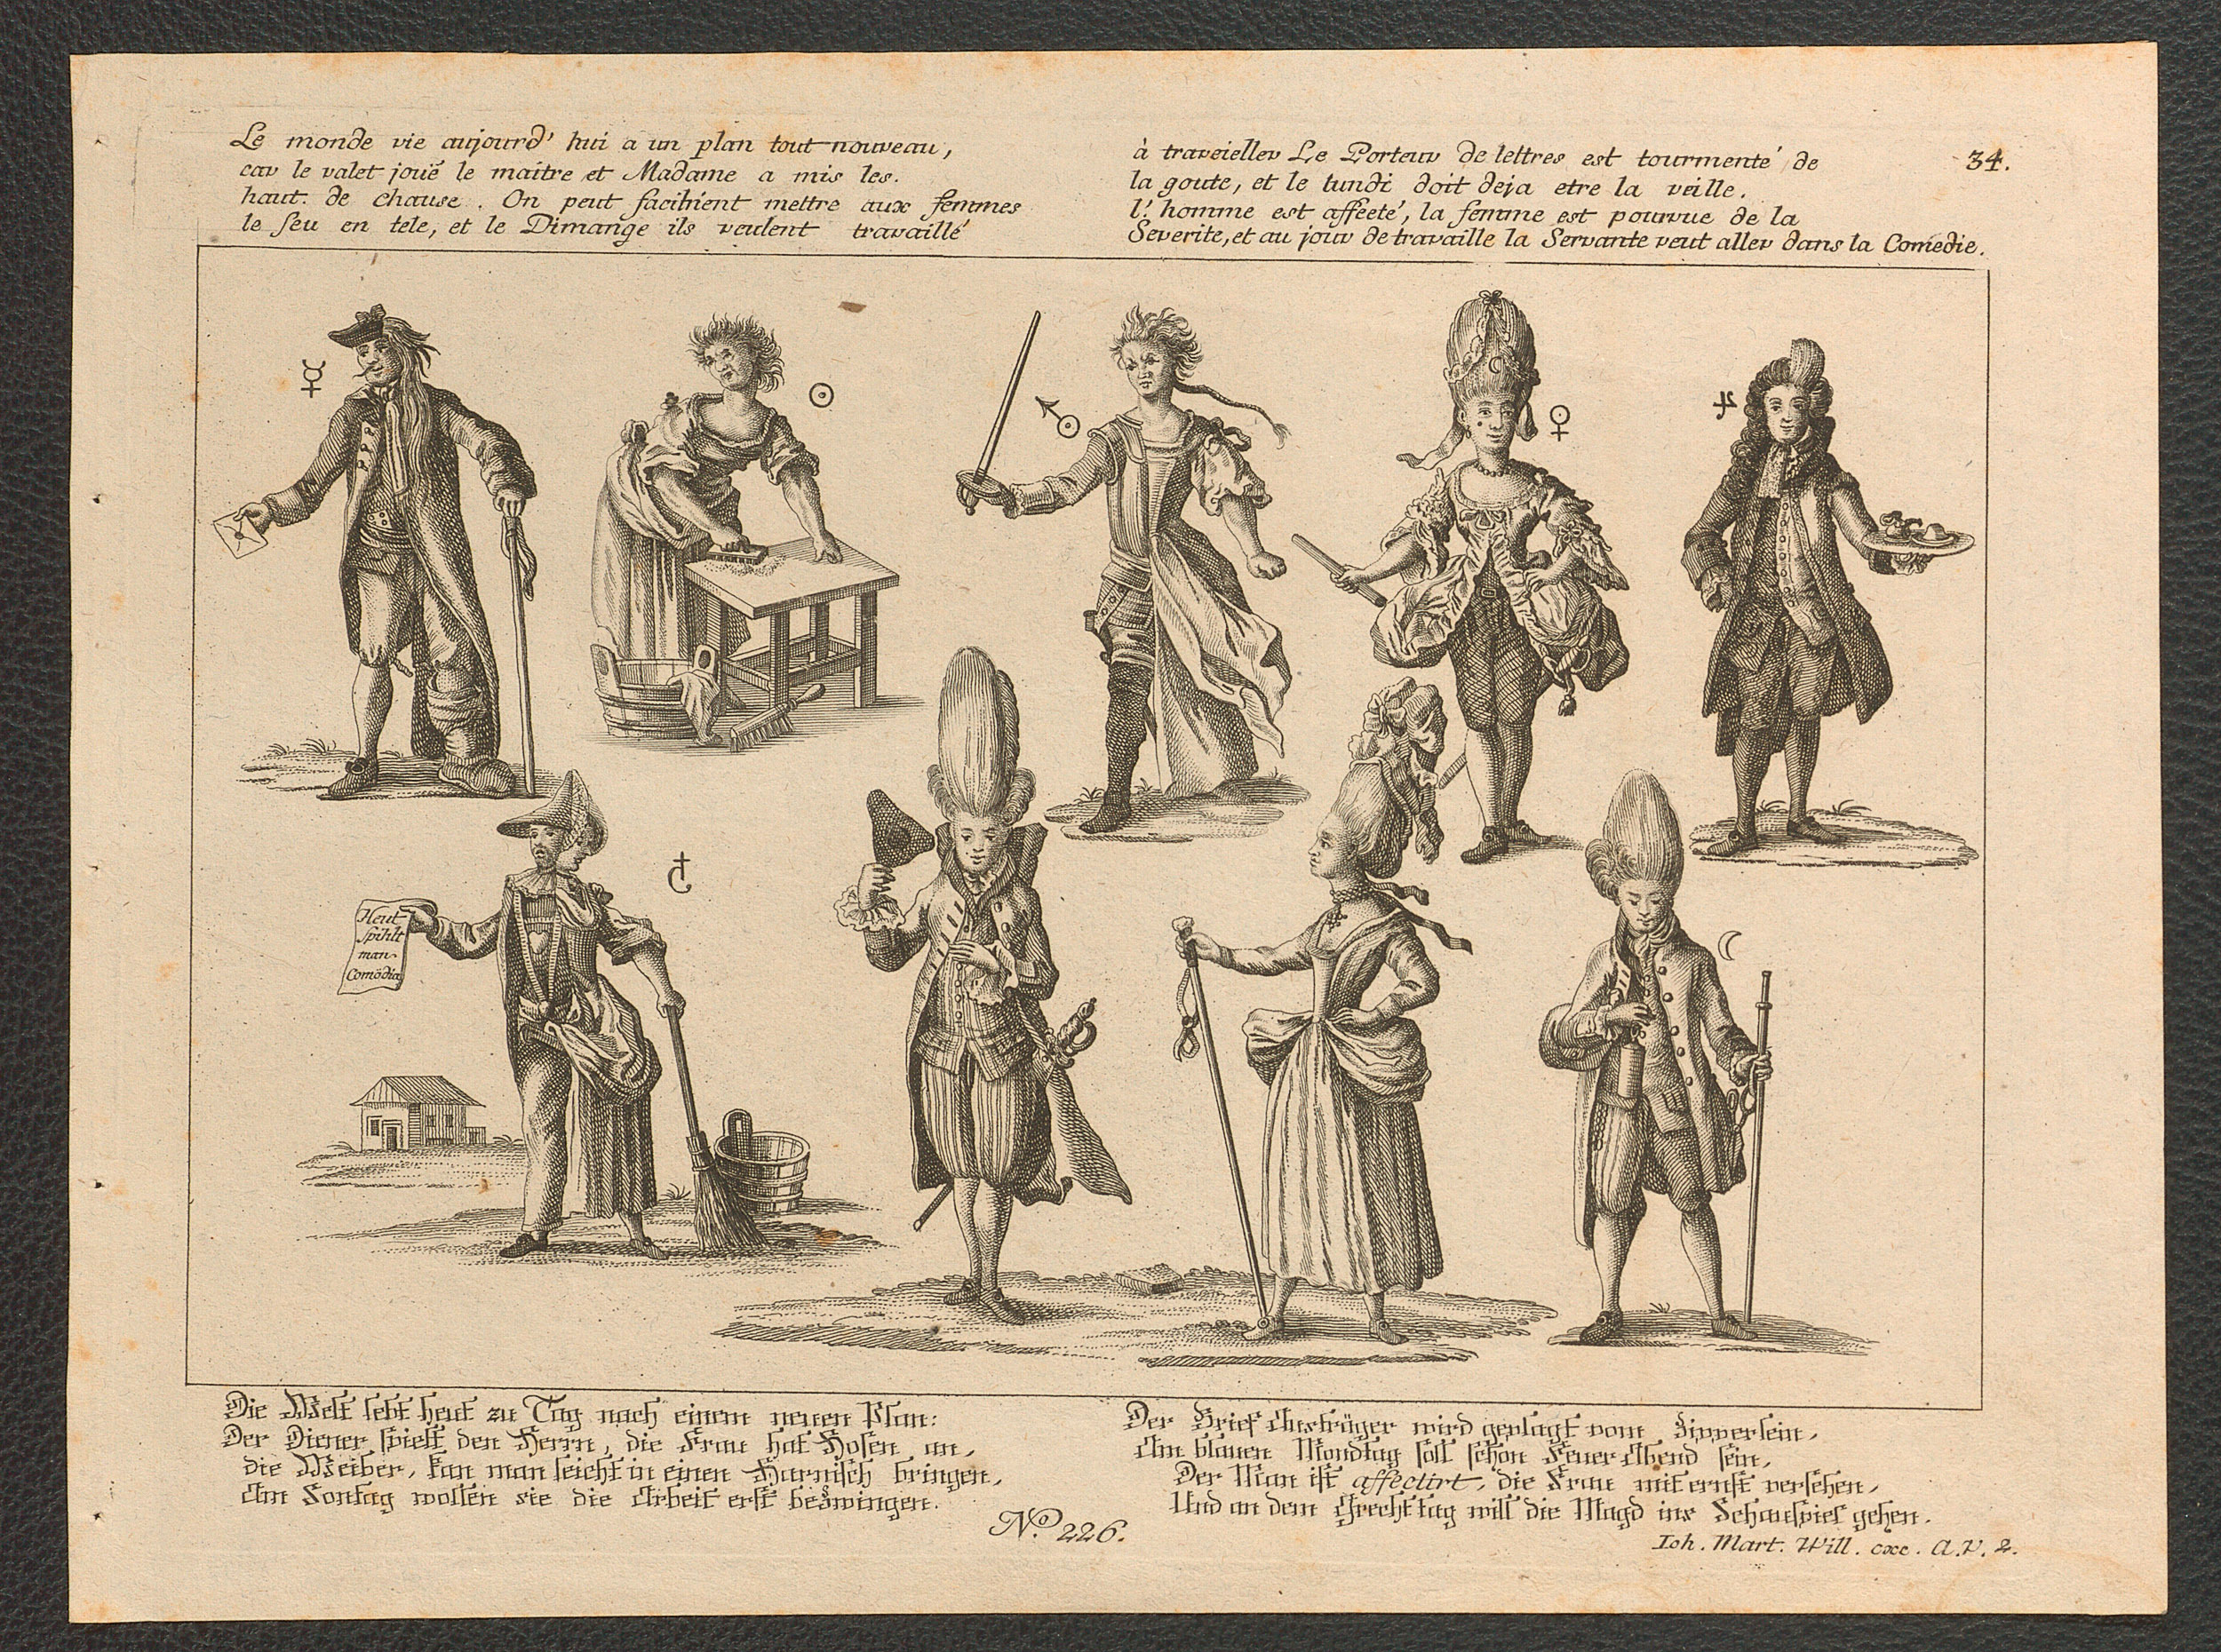 Le monde vie aujourd' hui a un plan tout nouveau,
car le valet jouë le maitre et Madame a mis les.
haut. de chause. On peut facilient mettre aux femmes
le feu en tele, et le Dimange ils veulent travaillé
à traveieller Le Porteur de lettres est tourmenté de
la goute, et le lundi doit deja etre la veille.
l'homme est affeeté, la femme est pourvue de la
Severite, et au jour de travaille la Servante veut aller dans la Comedie.
34.
Heut
spihlt
man
Comödia
Die Welt lebt heut zu Tag nach einem neuen Plan:
Der Diener spielt den Herrn, die Frau hat Hosen an,
die Weiber, kan man leicht in einen Harnisch bringen,
Am Sontag wollen sie die Arbeit erst bezwingen.
Der Brief Austräger wird geplagt vom Zipperlein,
Am blauen Mondtag soll schon Feuer Abend sein,
Der Man ist affectirt, die Frau mit ernst versehen,
Und an dem Grechttag will die Magd ins Schauspiel gehen.
No. 226.
Ioh. Mart. Will. exc. A.V. 2.